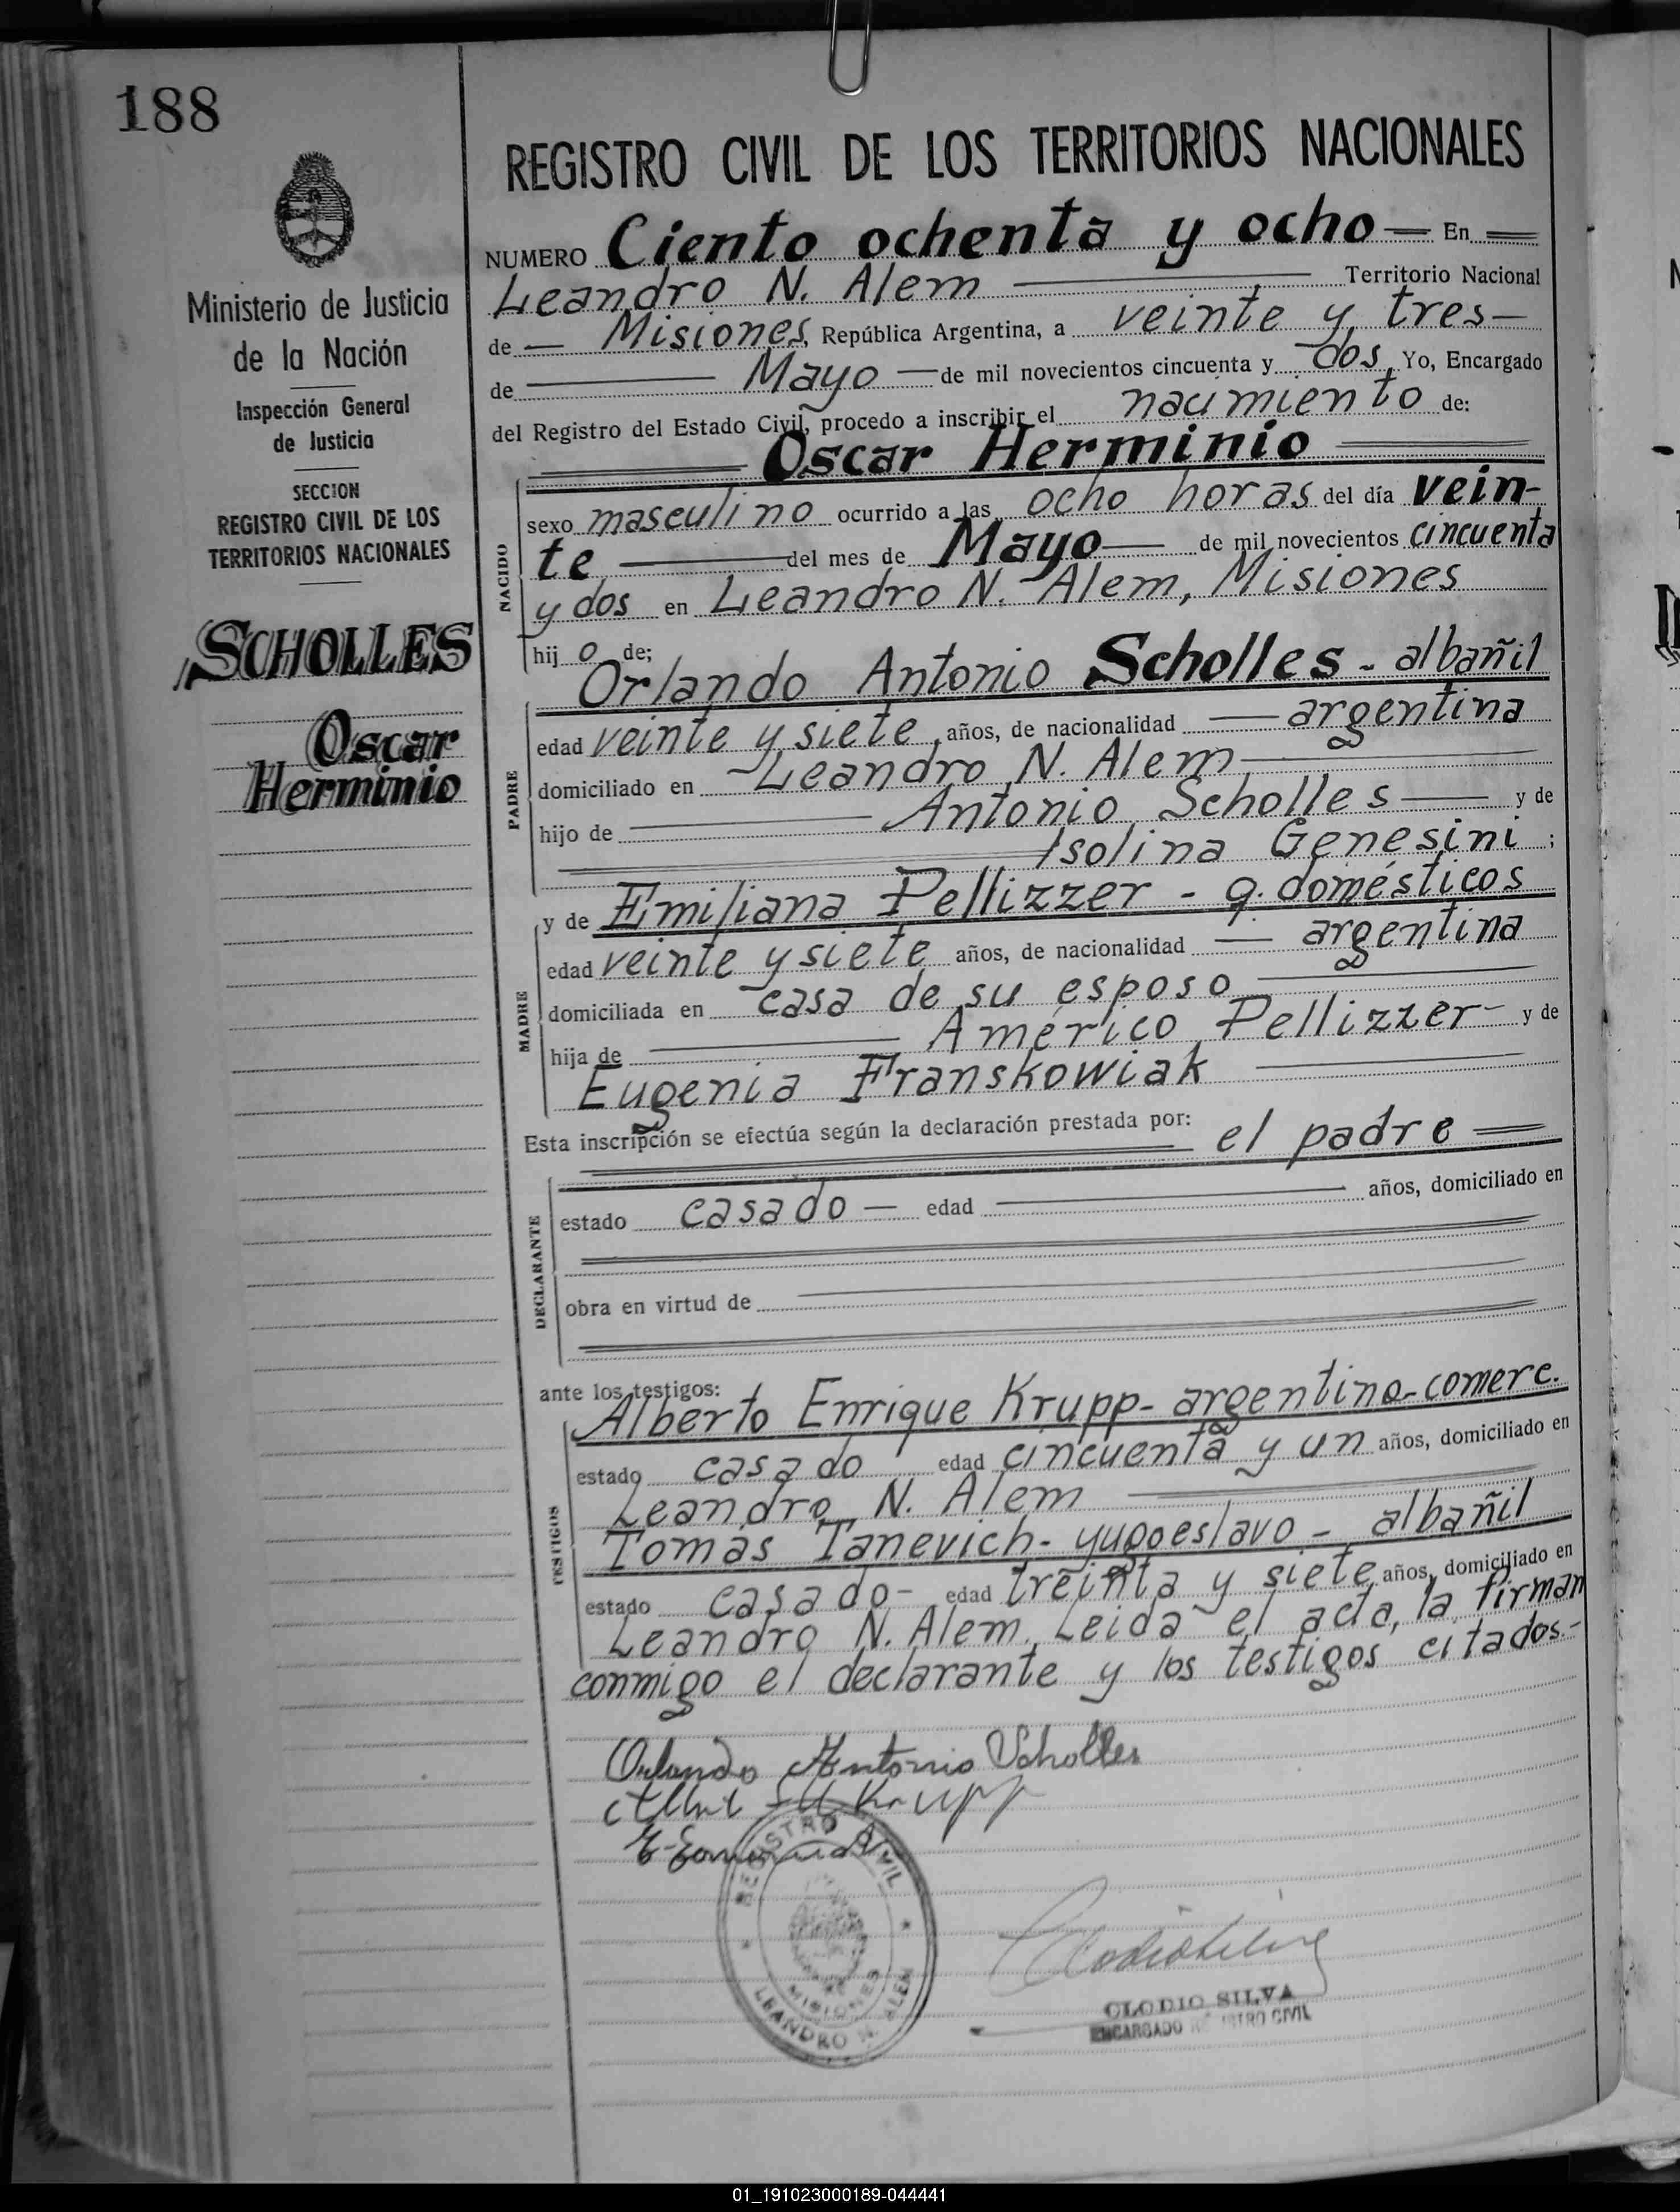 188
Ministerio de Justicia
de la Nación
Inspección General
de Justicia
SECCION
REGISTRO CIVIL DE LOS
TERRITORIOS NACIONALES
SCHOLLES
Oscar
Herminio
REGISTRO CIVIL DE LOS TERRITORIOS NACIONALES
NUMERO Ciento ochenta y ocho — En
Leandro N. Alem Territorio Nacional
de — Misiones, República Argentina, a veinte y tres —
de Mayo — de mil novecientos cincuenta y dos, Yo, Encargado
del Registro del Estado Civil, procedo a inscribir el nacimiento de:
Oscar Herminio
NACIDO
sexo masculino ocurrido a las ocho horas del día vein-
te — del mes de Mayo — de mil novecientos cincuenta
y dos en Leandro N. Alem, Misiones
hij o de;
Orlando Antonio Scholles - albañil
PADRE
edad veinte y siete, años, de nacionalidad — argentina
domiciliado en Leandro N. Alem
hijo de Antonio Scholles — y de
Isolina Genesini ;
y de Emiliana Pellizzer - q. domésticos
MADRE
edad veinte y siete años, de nacionalidad — argentina
domiciliada en casa de su esposo
hija de Américo Pellizzer - y de
Eugenia Franskowiak
Esta inscripción se efectúa según la declaración prestada por: el padre
DECLARANTE
estado casado — edad años, domiciliado en
obra en virtud de
ante los testigos:
Alberto Enrique Krupp - argentino - comerc.
TESTIGOS
estado casado edad cincuenta y un años, domiciliado en
Leandro N. Alem
Tomás Tanevich - yugoeslavo - albañil
estado casado - edad treinta y siete, años, domiciliado en
Leandro N. Alem. Leida el acta, la firman
conmigo el declarante y los testigos citados.-
Orlando Antonio Scholles
Krupp
REGISTRO CIVIL
MISIONES
LEANDRO N. ALEM
CLODIO SILVA
ENCARGADO REGISTRO CIVIL
01_191023000189-044441